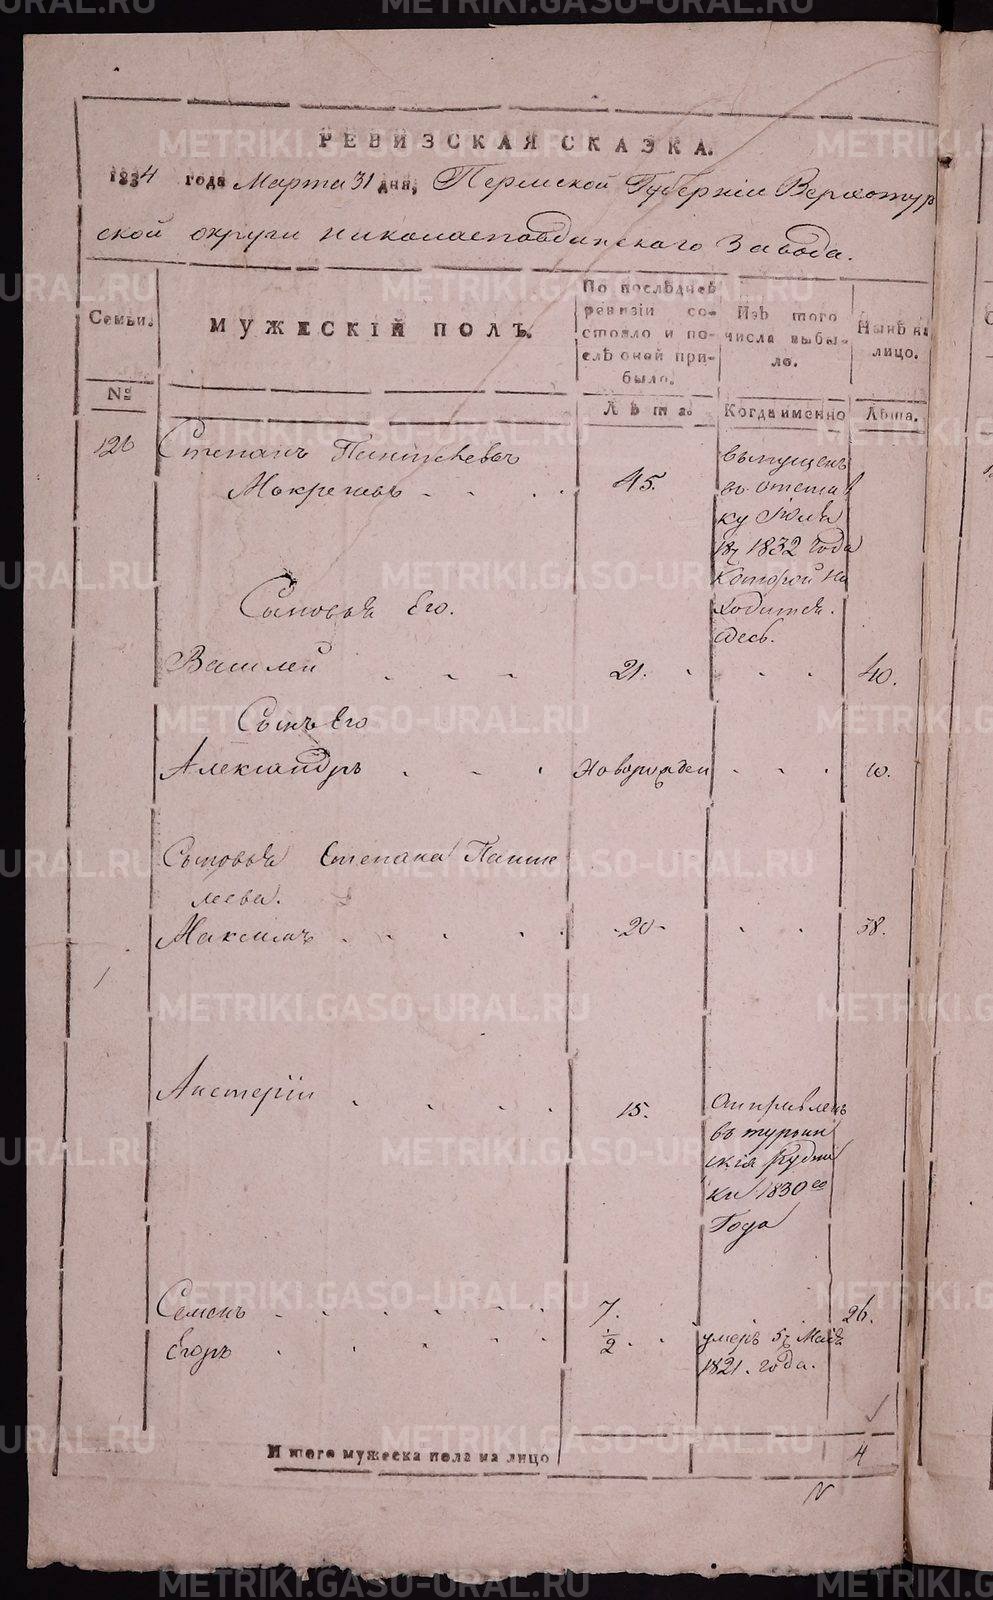 РЕВИЗСКАЯ СКАЗКА.
1834 года Марта 31 дня, Пермской Губернiи Верхотур
ской округи Николаепавдинскаго Завода.
Семьи.
МУЖЕСКIЙ ПОЛЪ.
По послѣдней
ревизiи со-
стояло и по-
слѣ оной при-
было.
Изъ того
числа выбы-
ло.
Нынѣ на
лицо.
№
Лѣта.
Когда именно
Лѣта.
126
Степанъ Пантилѣевъ
Мокрецовъ
45.
выпущенъ
въ отстав
ку Юля
18 1832 года
которой на
ходится
здесь.
Сыновья Его.
Василей
21.
40.
Сынъ Его
Александръ
Новорожден
10.
Сыновья Степана Панте
леева.
Максимъ
20
38.
Аистерiи
15.
Отправленъ
въ турьин
скiя Рудни
ки 1830го
Года
Семенъ
7.
26.
Егоръ
1/2
умеръ 5 Мая
1821. года.
Итого мужеска пола на лицо
4
METRIKI.GASO-URAL.RU